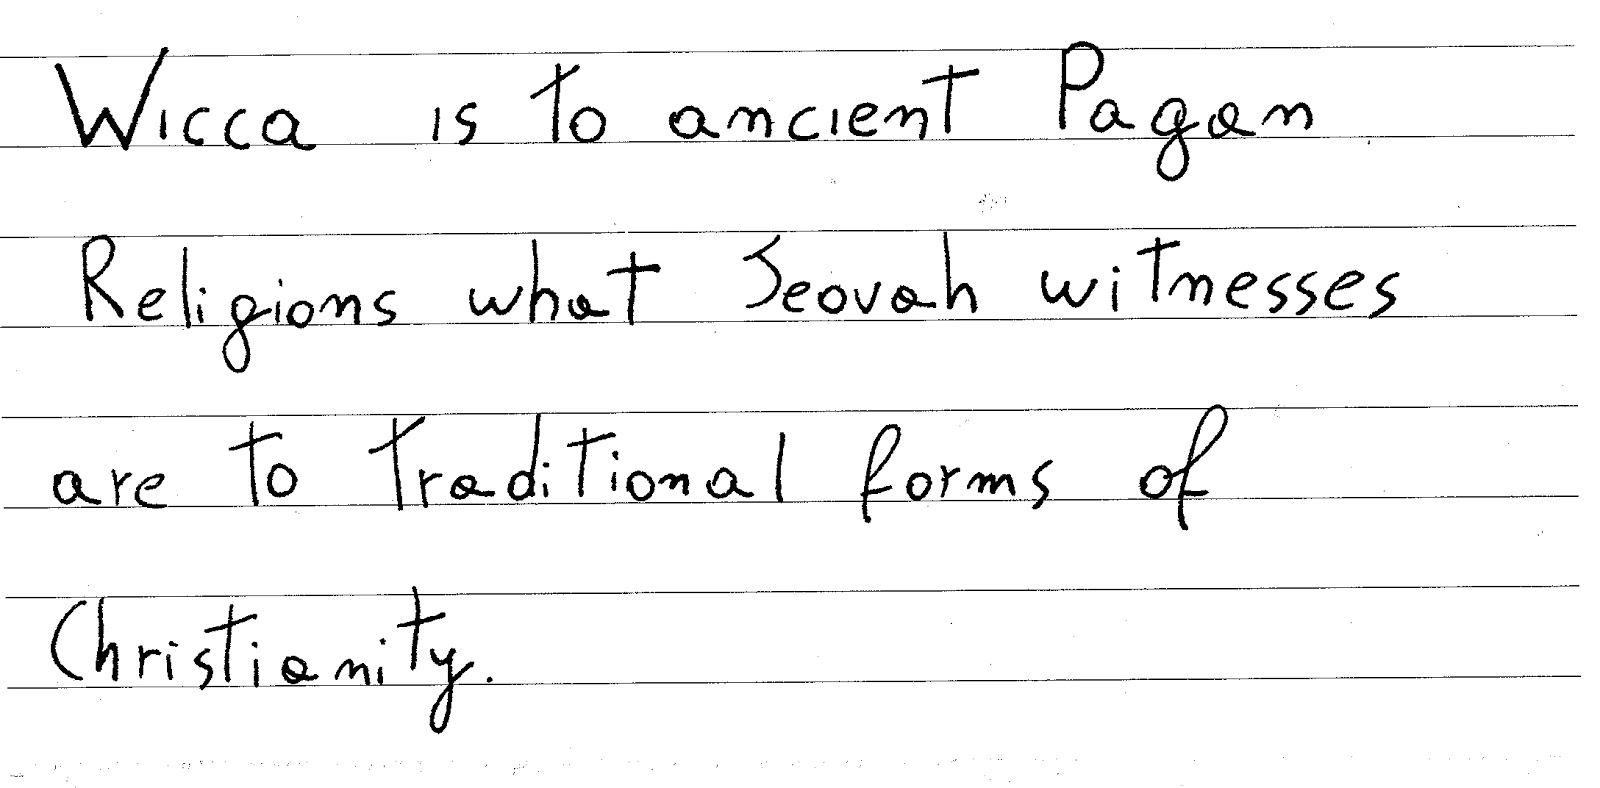 Wicca is to ancient Pagan
Religions what Jeovah witnesses
are to traditional forms of
Christianity.